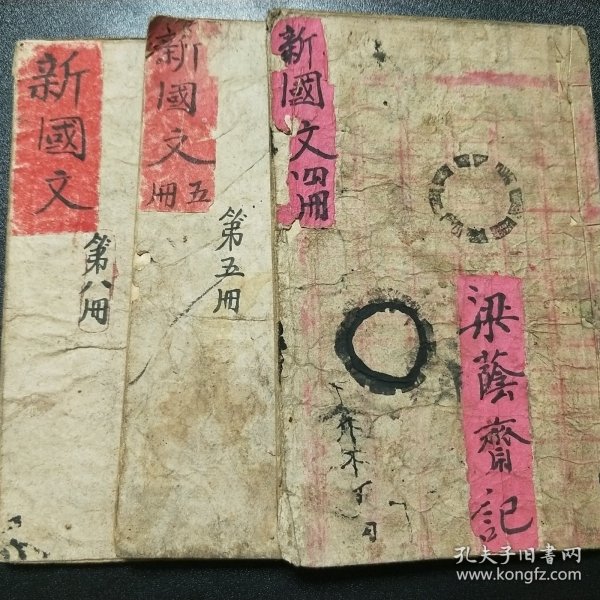 新國文
第八冊
新國文
五冊
第五冊
新國文四冊
梁蔭齋記
孔夫子旧书网
www.kongfz.com